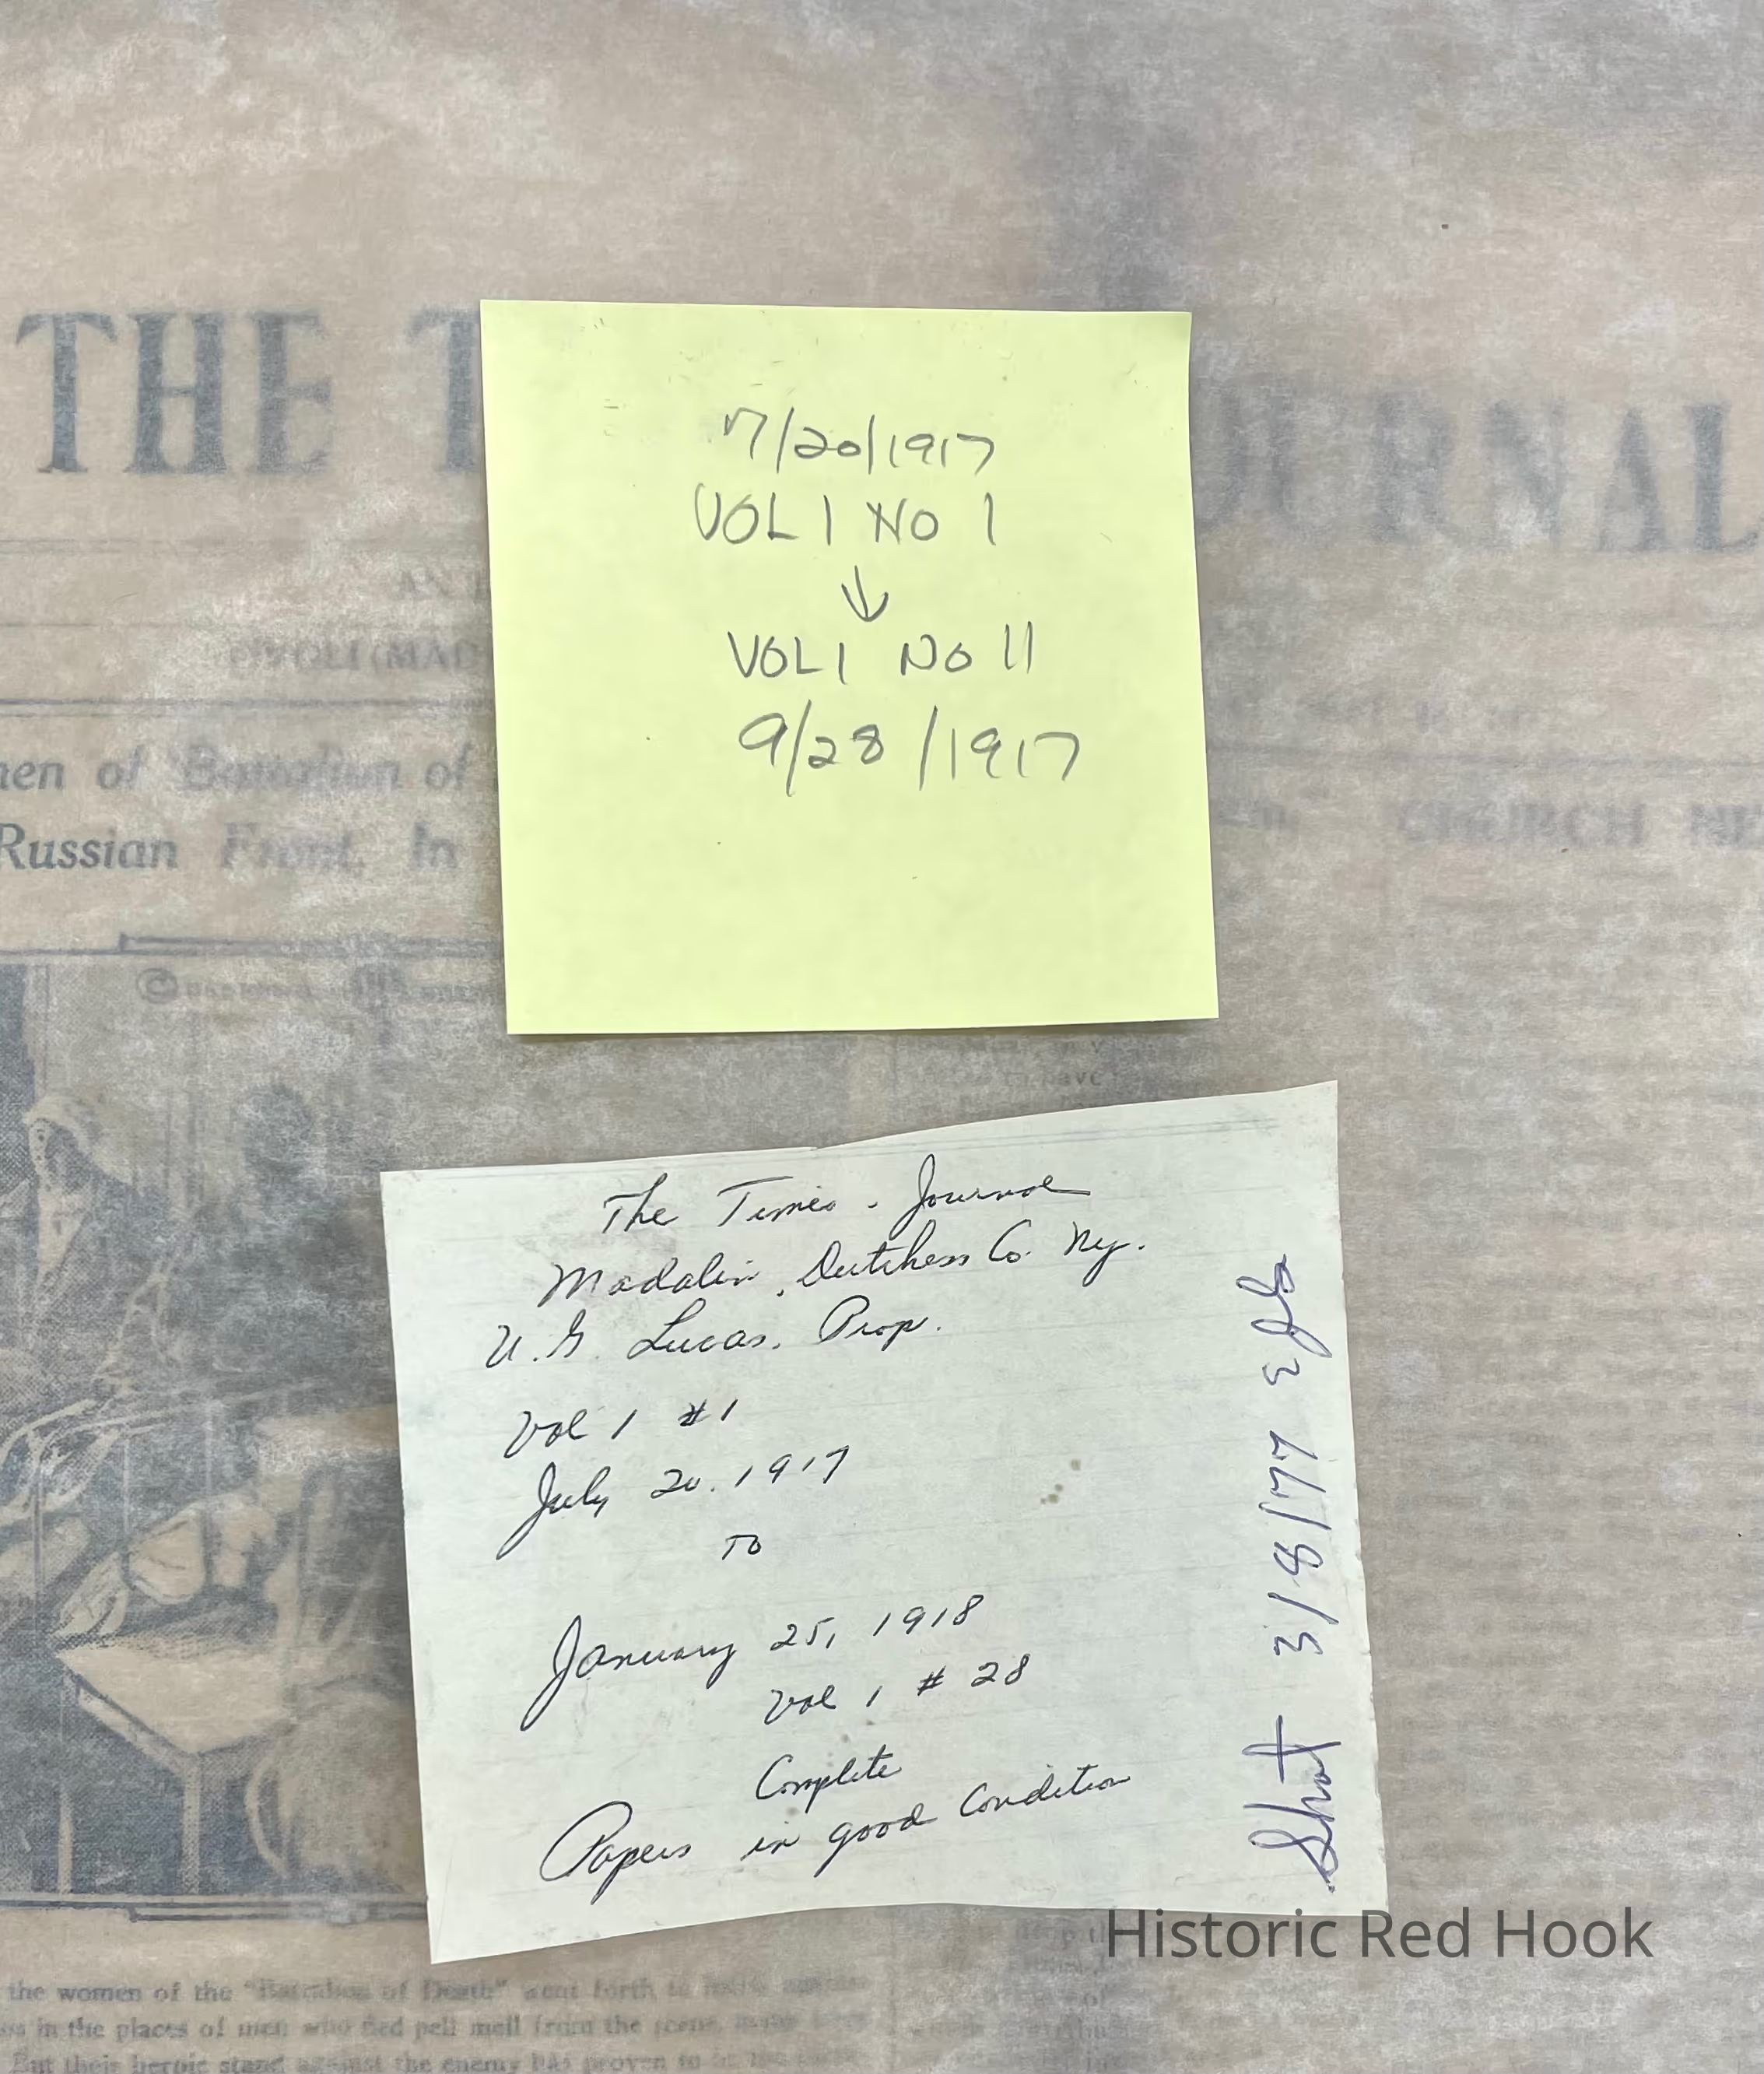 THE T
URNAL
TIVOLI (MAD
men of "Battalion of
Russian Front. In
CHURCH NE
7/20/1917
VOL 1 NO 1
↓
VOL 1 NO 11
9/28/1917
©
have
The Times-Journal
Madalin, Dutchess Co. Ny.
U.G. Lucas. Prop.
Vol 1 #1
July 20. 1917
TO
January 25, 1918
Vol 1 #28
Complete
Papers in good Condition
Shot 3/8/77 EJG
Historic Red Hook
the women of the "Battalion of Death" went forth to
in the places of men who fled pell mell from the scene, many were
But their heroic stand against the enemy has proven to